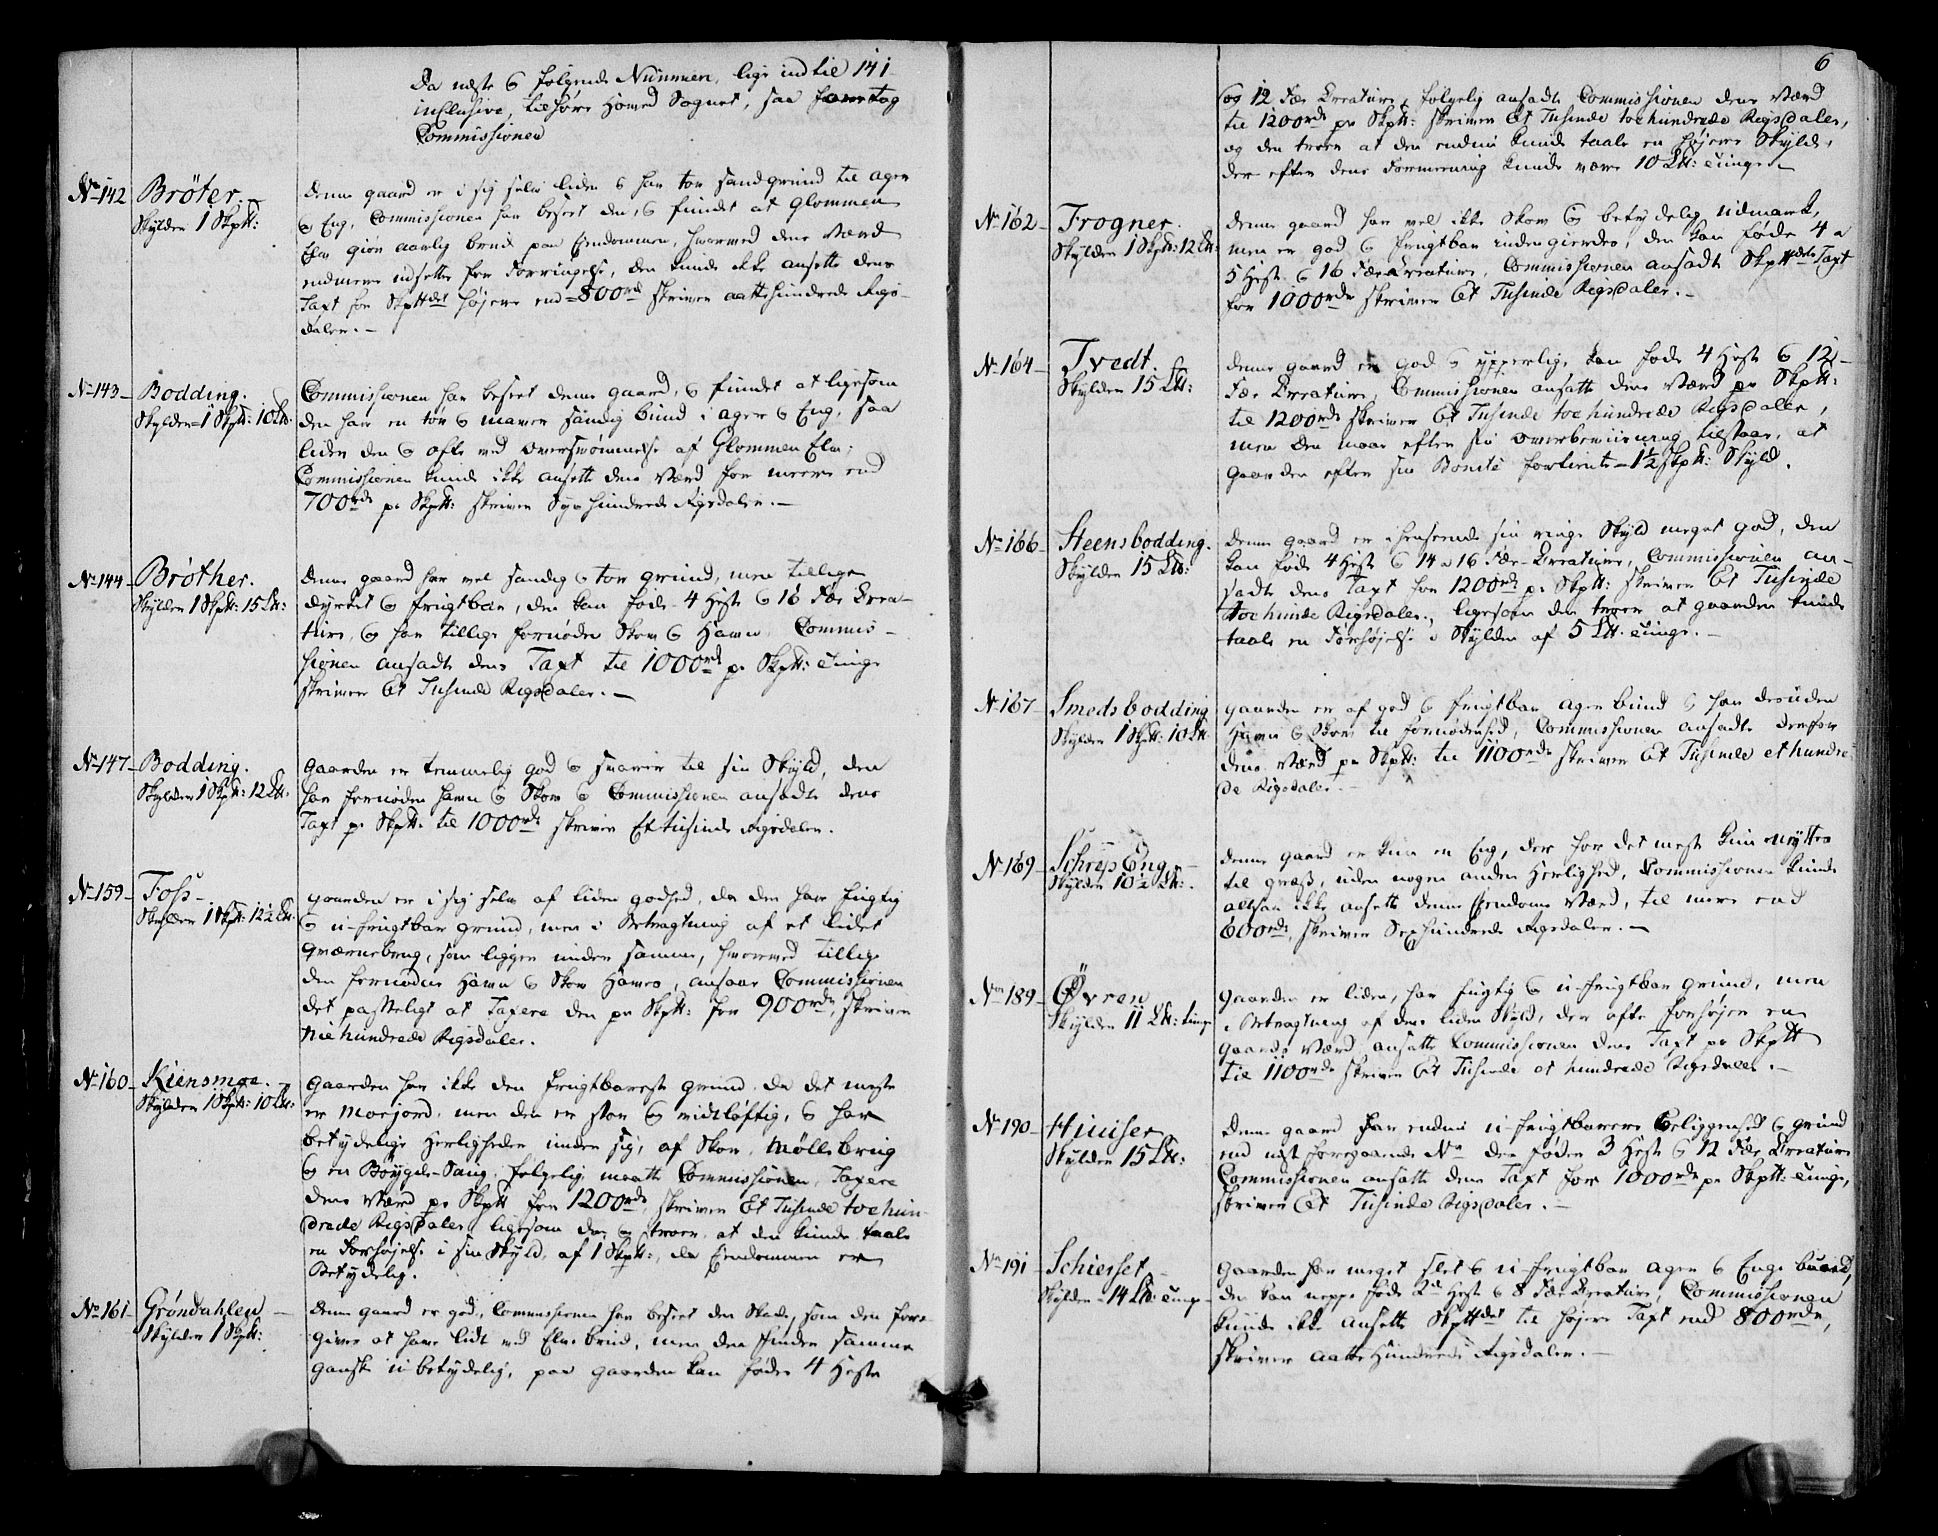 Da næste 6 følgende Nummere, lige indtil 141
inclusive, tilhøre Homed Sognet, saa foretog
Commissionen
No 142 Brøter. Skylder 1 Skptt:
denne gaard er i sig selv liden & har tør sandgrund til ager
& Eng, Commissionen har beseet den, & fundet at Glommen
Elv giør aarlig brud paa Eiendommen, hvormed dens Værd
endmere udsettes for Forringelse, den kunde ikke ansette dens
Taxt for Skpttdet højere end 800rd skriver aattehundrede Rigs-
daler.-
No 143 Bodding. Skylder 1 Skptt: 10 Lb.
Commissionen har beseet denne gaard, & fundet at ligesom
den har en tør & mager sandig bund i ager & Eng, saa
lider den & ofte ved Oversvømmelse af Glommen Elv;
Commissionen kunde ikke ansette dens Værd for meere end
700rde pr Skptt: skriver Syv hundrede Rigsdaler.-
No 144 Brøther. Skylder 1 Skptt: 15 Lb:
Denne gaard har vel sandig & tør grund, men tillige
dyrket & frugtbar, den kan føde 4 Heste & 16 Fæe Crea-
turer, & har tillige fornøden Skov & Havn. Commis-
sionen ansadte dens Taxt til 1000rd pr Skptt: tunge
skriver Et Tusinde Rigsdaler.-
No 147 Bodding. Skylder 1 Skptt: 12 Lb.
Gaarden er temmelig god & svarer til sin Skyld, den
har fornøden havn & Skov & Commissionen ansadte dens
Taxt pr Skptt. til 1000rde skriver Et tusinde Rigsdaler.
No 159 Foss- Skylder 1 Skptt: 12½ Lb.
gaarden er i sig selv af liden godhed, da den har fugtig
& u-frugtbar grund, men i Betragtning af et lidet
Qværnebrug, som ligger under samme, hvormed tillige
den fornødne Havn & Skov haves, ansaae Commissionen
det passeligt at Taxere den pr Skptt: for 900rdr, skriver
Nie hundrede Rigsdaler.
No 160 Kiensmoe. Skylder 1 Skptt: 10 Lb:
Gaarden har ikke den frugtbareste grund, da det meste
er Moejord, men den er stor & vidtløftig, & har
betydelige Herligheder under sig, af Skov, Møllebrug
& en Bøygde-Saug, følgelig maatte Commissionen Taxere
dens Værd pr Skptt for 1200rde, skriver Et Tusinde toe hun-
drede Rigsdaler, ligesom den & troer, at den kunde taale
en Forhøjelse i sin Skyld, af 1 Skptt:, da Eiendommen er
Betydelig.
No 161 Grøndahlen - Skylder 1 Skptt:
Denne gaard er god, Commissionen har beseet den Skade, som den fore-
giver at have lidt ved Elve brud, men den finder samme
ganske ubetydelig, paa gaarden kan fødes 4 Heste
6
& 12 Fæe Creature, følgelig ansadte Commissionen dens Værd
til 1200rdr pr Skptt: skriver Et Tusinde toe hundrede Rigsdaler,
og den troer at den endnu kunde taale en højere Skyld,
der efter dens Formeening kunde være 10 Lb: tunge.-
No 162 Frogner. Skylder 1 Skptt: 12 Lb:
denne gaard har vel ikke Skov & betydelig udmark,
men er god & frugtbar inden gierdes, den kan føde 4 a
5 Heste & 16 Fæe Creature, Commissionen ansadte Skpttdets Taxt
for 1000rdr skriver Et Tusinde Rigsdaler.-
No 164 Tvedt. Skylder 15 Lb:
denne gaard er god & ypperlig, kan føde 4 Heste & 12
Fæe Creature, Commissionen ansatte dens Værd pr Skptt:
til 1200rde skriver Et Tusinde toe hundrede Rigsdaler,
men den maae efter sin Overbeviisning tilstaae, at
gaarden efter sin Bonité fortiente 1½ Skptt: Skyld.
No 166 Steensbodding. Skylder 15 Lb:
denne gaard er i henseende sin ringe Skyld meget god, den
kan føde 4 Heste & 14 a 16 Fæe-Creature, Commissionen an-
sadte dens Taxt for 1200rd pr Skptt: skriver Et Tusinde
toe hunde Rigsdaler, ligesom den troer at gaarden kunde
taale en Forhøjelse i Skylden af 5 Lb. tunge.-
No 167 Smedsbodding Skylder 1 Skptt: 10 Lb.
gaarden er af god & frugtbar ager bund & har desuden
Havn & Skov til fornødenhed, Commissionen ansadte derfor
dens Værd pr Skptt: til 1100rde skriver Et Tusinde et hundre-
de Rigsdaler.-
No 169 Schryp Eng - Skylder 10½ Lb:.
denne gaard er kun en Eng, der for det meste kun nyttes
til græss, uden nogen anden Herlighed, Commissionen kunde
altsaa ikke ansette denne Eiendoms Værd, til mere end
600rde, skriver Sexhundrede Rigsdaler.-
No 189 Øvren Skylder 11 Lb: tunge
gaarden er liden, har fugtig & u-frugtbar grund, men
i Betragtning af dens liden Skyld, der ofte forhøjer en
gaards Værd ansatte Commissionen dens Taxt pr Skptt
til 1100rde skriver Et Tusinde et hundrede Rigsdaler.-
No 190 Huuser Skylder 15 Lb:
Denne gaard har endnu u-frugtbarere Beliggenhed & grund
end næst foregaaende No den føder 3 Heste & 12 Fæe Creature
Commissionen ansatte dens Taxt for 1000rde pr Skptt: tunge,
skriver Et Tusinde Rigsdaler.-
No 191 Schierset Skylder 14 Lb: tunge
Gaarden har meget slet & u-frugtbar ager & Enge bund,
den kan neppe føde 2de Heste & 8 Fæe Creature, Commissionen
kunde ikke ansette Skpttdet til højere Taxt end 800rdr,
skriver aatte Hundrede Rigsdaler.-